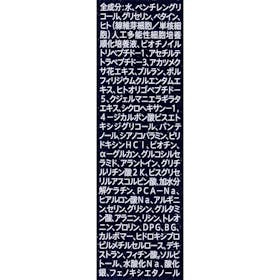 全成分：水、ペンチレングリ
コール、グリセリン、ベタイン、
ヒト（線維芽細胞／単核細
胞）人工多能性細胞培養
順化培養液、ビオチノイル
トリペプチド-1、アセチルテ
トラペプチド-3、アカツメク
サ花エキス、プルラン、ポル
フィリジウムクルエンタムエ
キス、ヒトオリゴペプチド
-5、クジェルマニエラギラタ
エキス、シクロヘキサン-1,
4-ジカルボン酸ビスエト
キシジグリコール、パンテ
ノール、シアノコバラミン、ピリ
ドキシンHCl、ビオチン、
α-グルカン、グルコシルセ
ラミド、アラントイン、グリチ
ルリチン酸2K、ビスグリセ
リルアスコルビン酸、加水分
解ケラチン、PCA-Na、
ヒアルロン酸Na、アルギニ
ン、セリン、グリシン、グルタミ
ン酸、アラニン、リシン、トレオ
ニン、プロリン、DPG、BG、
カルボマー、ヒドロキシプロ
ピルメチルセルロース、デキ
ストラン、フィチン酸、ソルビ
トール、水酸化Na、酸化
銀、フェノキシエタノール